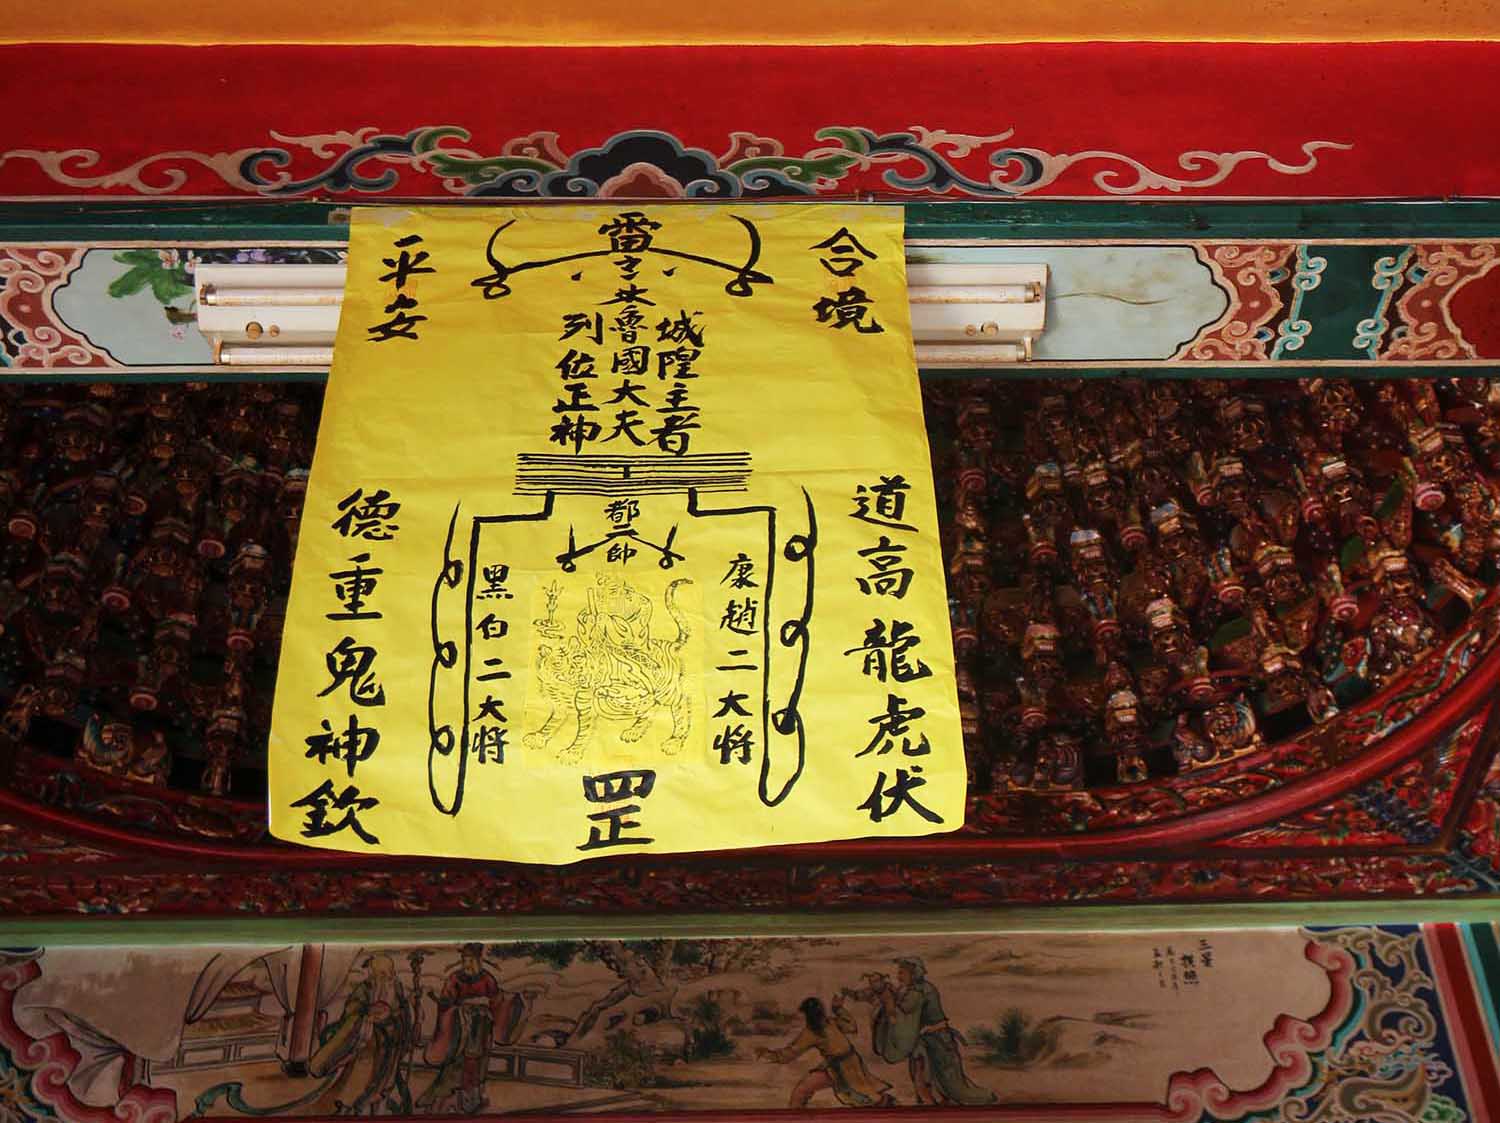 合境
平安
雷
城隍主者
魯國大夫
列位正神
都二帥
康趙二大將
黑白二大將
罡
道高龍虎伏
德重鬼神欽
三星